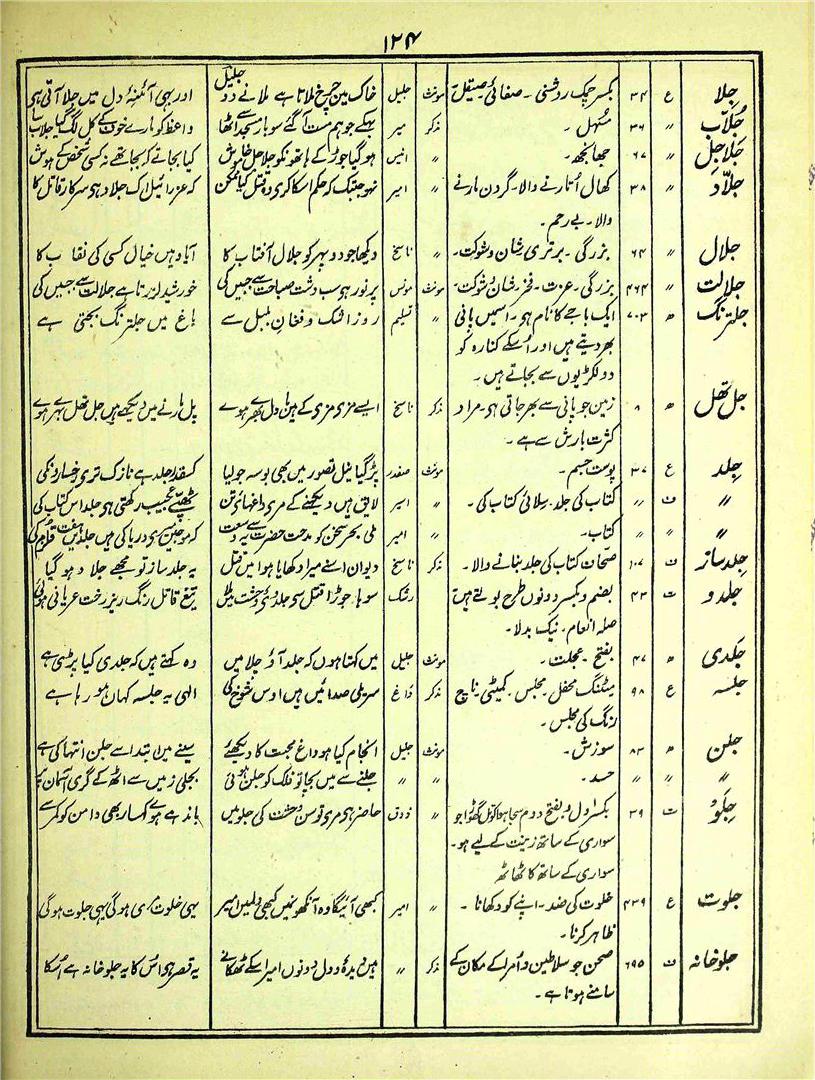 ۱۲۴
جلا ع ۳۴ بکسر چمک روشنی ۔ صفائی صیقل ۔ مونث جلیل خاک میں چرخ ملاتا ہے ملانے دو جلیل اور بھی آئنۂ دل میں جلا آتی ہی
جُلاب ″ ۳۶ مُسہل ۔ مذکر میر بہکے جو ہم مست آ گئے سو بار مسجد سے اٹھا واعظ کو مارے خوف کے کل لگ گیا جلاب سا
جَلاجِل ″ ۶۷ جھانجھ ۔ ″ انیس ہو گیا جوڑ کے ہاتھونکو جلاجل خاموش کیا بجاتے کہ بجا تھے نہ کسی شخص کے ہوش
جلّاد ″ ۳۸ کھال اُتارنے والا ۔ گردن مارنے ″ امیر نہو جبتک کہ حکم اسکا کری وہ قتل کیا ممکن کہ عزرائیل اک جلاد ہی سرکار قاتل کا
والا ۔ بے رحم ۔
جلال ″ ۶۴ بزرگی ۔ برتری شان و شوکت ۔ ″ ناسخ دیکھا جو دوپہر کو جلال آفتاب کا آیا وہیں خیال کسی کی نقاب کا
جلالت ″ ۴۶۴ بزرگی ۔ عزت ۔ فخر شان و شوکت ۔ مونث مونس پر نور ہو سب دشت صباحت سے جبیں کی خورشید لرزتا ہے جلالت سے جبیں کی
جلترنگ ھ ۷۰۳ ایک باجے کا نام ہو ۔ اسمیں پانی ″ تسلیم روز اشک و فغانِ بلبل سے باغ میں جلترنگ بجتی ہے
بھر دیتے ہیں اور اُسکے کنارہ کو
دو لکڑیوں سے بجاتے ہیں ۔
جل تھل ھ ۸ زمین جو پانی سے بھر جاتی ہی مراد مذکر ناسخ ایسے مری مژی کے ہیں بادل بھرے ہوے پل مارنے میں دیکھے ہیں جل تھل بھرے ہوے
کثرت بارش سے ہے ۔
جِلد ع ۳۷ پوست جسم ۔ مونث صفدر پڑ گیا نیل تصور میں بھی بوسہ جو لیا کسقدر جلد ہے نازک تری رخسارونکی
″ ف ″ کتاب کی جلد ۔ سلائی کتاب کی ۔ ″ امیر لایق ہیں دیکھنے کے مری داغہای تن چھپے عجیب رکھتی ہی جلد اس کتاب کی
″ ″ ″ کتاب ۔ ″ امیر ملی بحرِ سخن کو مدحتِ حضرت سے یہ وسعت کہ موجیں میری دریا کی ہیں جلدیں ہفت قلزم کی
جلد ساز ف ۱۰۷ صحاف کتاب کی جلد بنانے والا ۔ مذکر ناسخ دیوان اسنے میرا دکھایا ہوا میں قتل یہ جلد ساز تو مجھے جلاد ہو گیا
جلدو ت ۴۳ بضم و بکسر دونوں طرح بولتے ہیں رشک سوہا جوڑا قتل کی جلدو میں وحشت میں ملا تیغ قاتل رنگ ریز رخت عریانی ہوئی
صلہ انعام ۔ نیک بدلا ۔
جَلدی ھ ۴۷ بفتح ۔ عجلت ۔ مونث جلیل میں کہتا ہوں کہ جلد آؤ جلا میں وہ کہتے ہیں کہ جلدی کیا پڑی ہے
جلسہ ع ۹۸ میٹنگ محفل ۔ مجلس ۔ کمیٹی ناچ مذکر داغ سریلی صدائیں ہیں اوس شوخ کی الٰہی یہ جلسہ کہاں ہو رہا ہے
رنگ کی مجلس ۔
جلن ھ ۸۳ سوزش ۔ مونث جلیل انجام کیا ہو داغِ محبت کا دیکھئے سینے میں ابتدا سے جلن انتہا کی ہے
″ ″ ″ حسد ۔ ″ ″ جلنے سے میں بچا تو فلک کو جلن ہوئی بجلی زمیں سے اٹھ کے گری آسمان پر
جِلَو ت ۳۹ بکسر اول و بفتح دوم سجا ہوا کوتل گھوڑا جو ″ ذوق حاضر ہی مری توسنِ وحشت کی جلو میں باندھے ہوے کہسار بھی دامن کو کمر سے
سواری کے ساتھ زینت کے لیے ہو ۔
سواری کے ساتھ کا ٹھاٹھ
جلوت ع ۴۳۹ خلوت کی ضد ۔ اپنے کو دکھانا ۔ ″ امیر کبھی آئیگا وہ آنکھونمیں کبھی دلمیں امیر یہی خلوت مری ہوگی یہی جلوت ہوگی
ظاہر کرنا ۔
جلوخانہ ف ۶۹۵ صحن جو سلاطین و اُمرا کے مکان کے مذکر ″ ہیں دیدۂ و دل دونوں امیر اسکے ٹھکانے یہ قصر ہی اُس کا یہ جلوخانہ ہے اُسکا
سامنے ہوتا ہے ۔